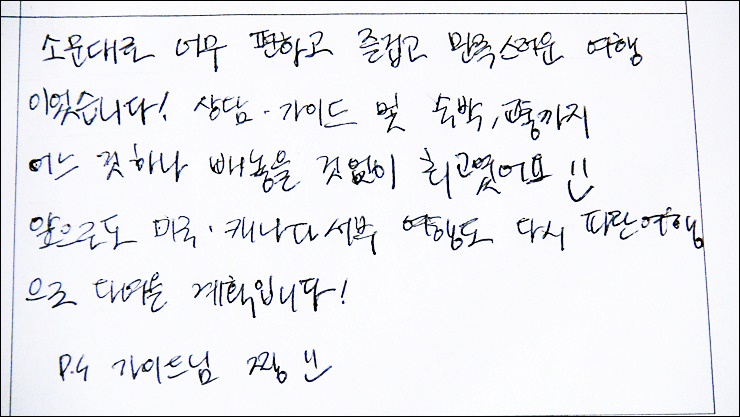 소문대로 너무 편하고 즐겁고 만족스러운 여행
이었습니다! 상담·가이드 및 숙박, 교통까지
어느 것하나 빼놓을 것없이 최고였어요 !!
앞으로도 미국·캐나다 서부 여행도 다시 파란여행
으로 다녀올 계획입니다!
P.S 가이드님 짱 !!